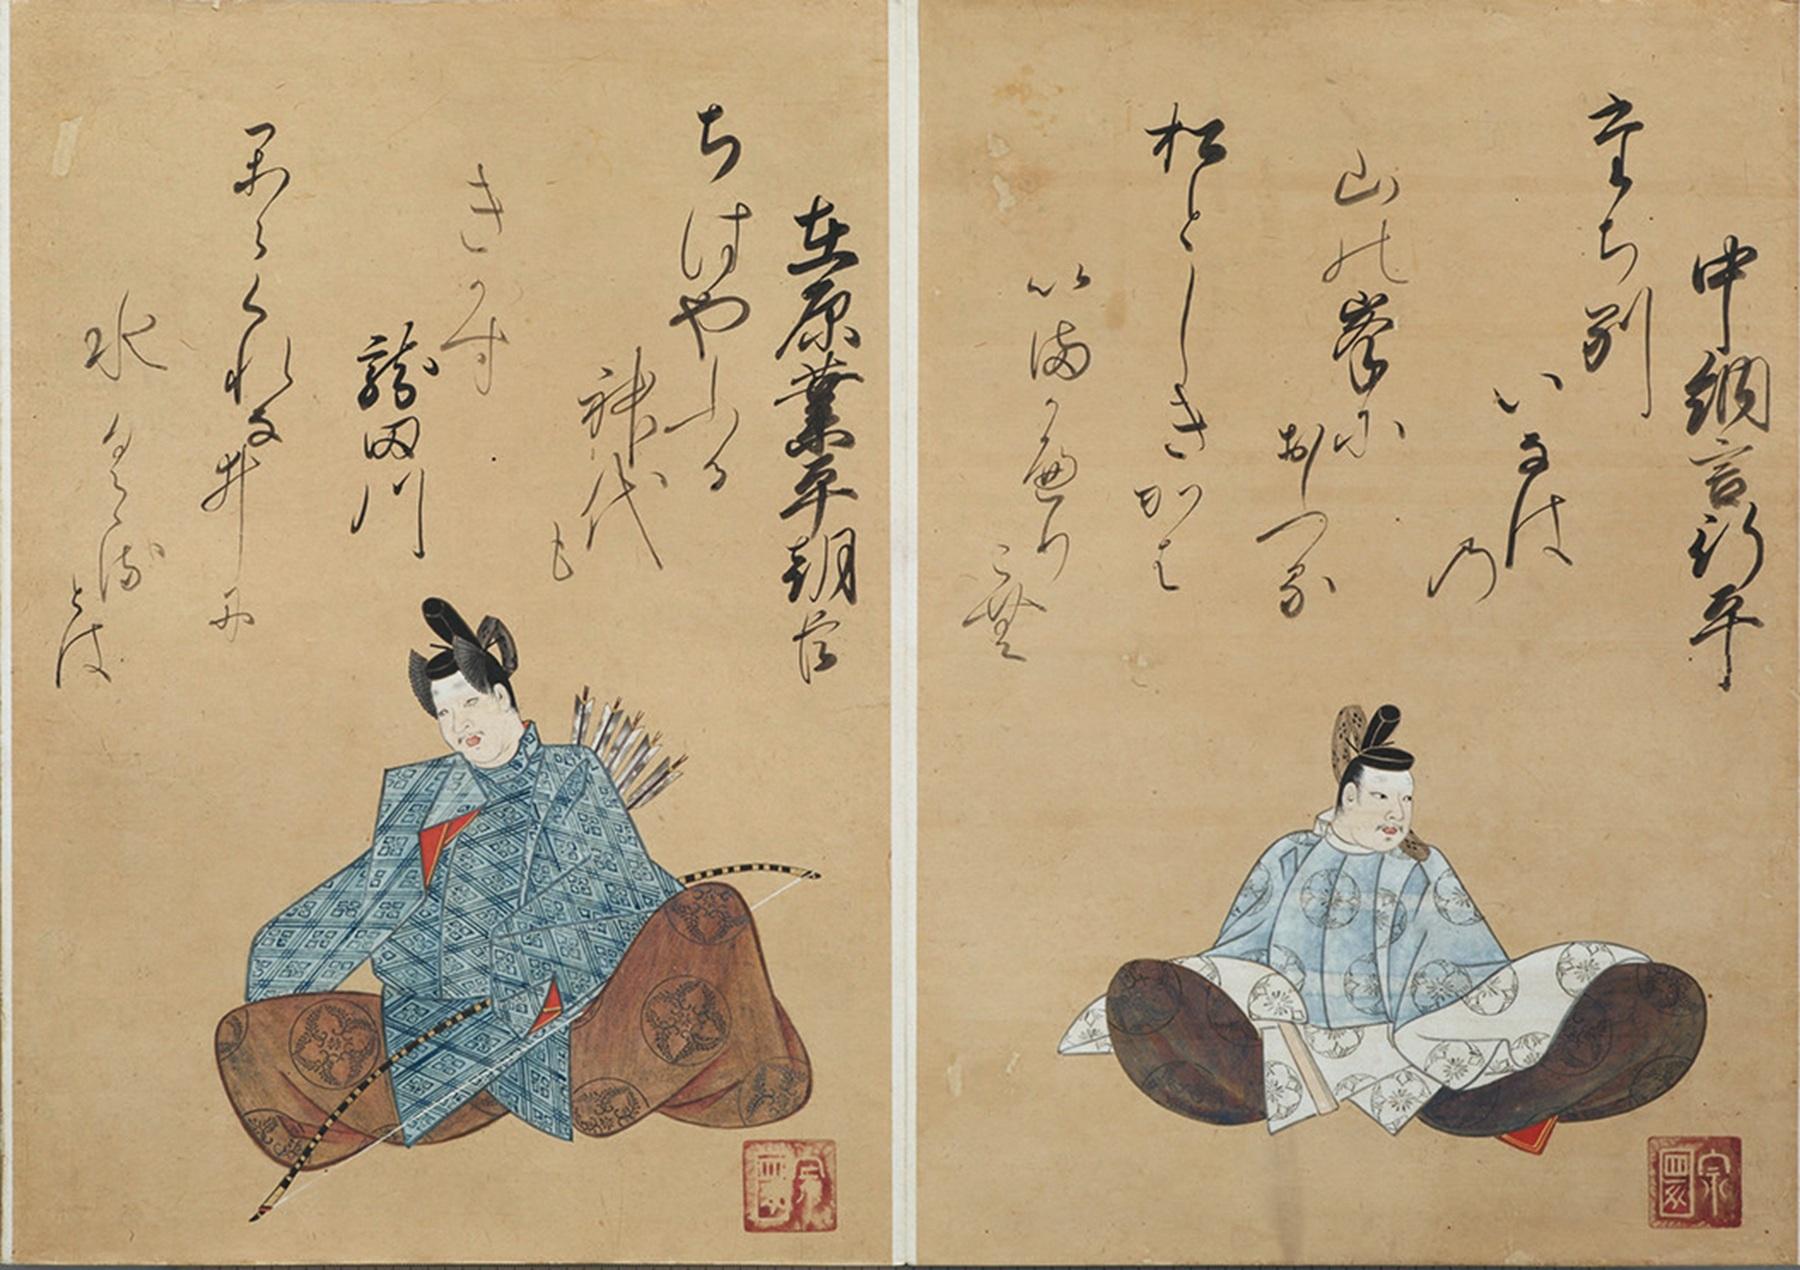 中納言行平
堂ち別
いなは
乃
山の峯尓
おふる
松としきかは
いまかへり
こむ
在原業平朝臣
ちはやふる
神代
も
きかす
龍田川
からくれな井に
水くゝる
とは